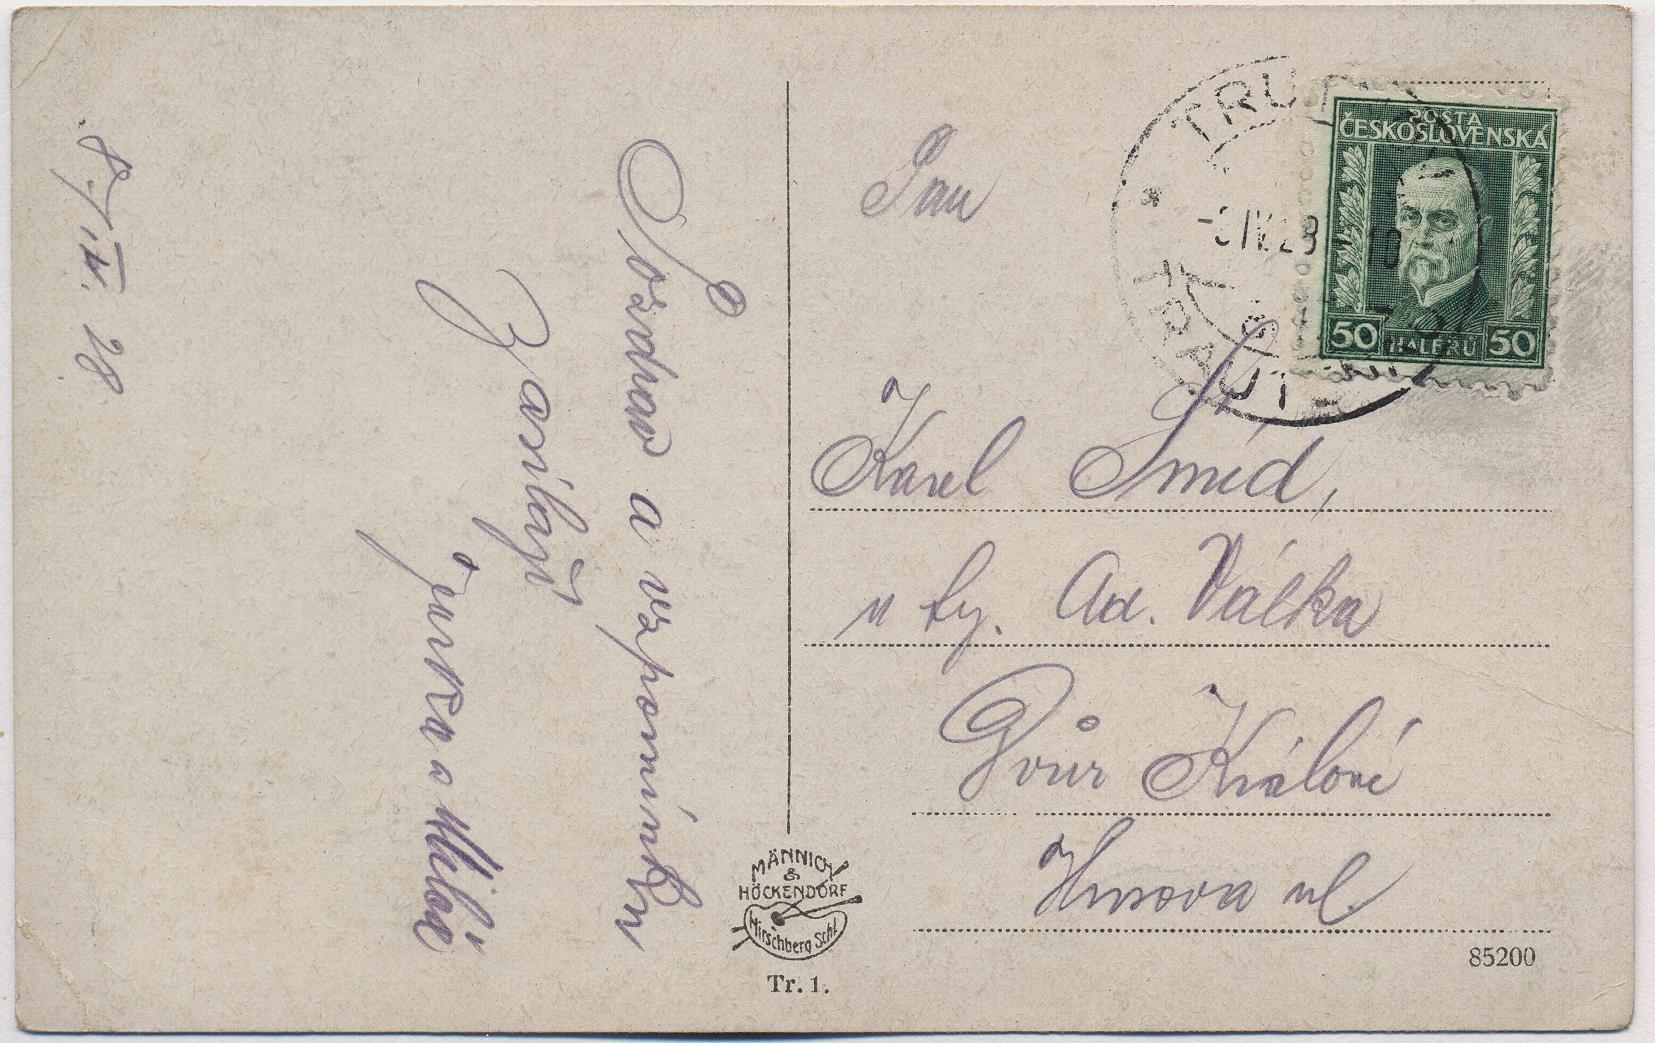 8./IV. 28.
Pozdrav a vzpomínku
Zasílají
Jurka a Miloš
Pan
Karel Šmíd,
u fy. Ad. Válka
Dvůr Králové
Husova ul.
TRU
TRAUT
IV.28
10
POŠTA
ČESKOSLOVENSKÁ
50 HALÉŘŮ 50
MÄNNICH
&
HÖCKENDORF
Hirschberg Schl.
Tr. 1.
85200